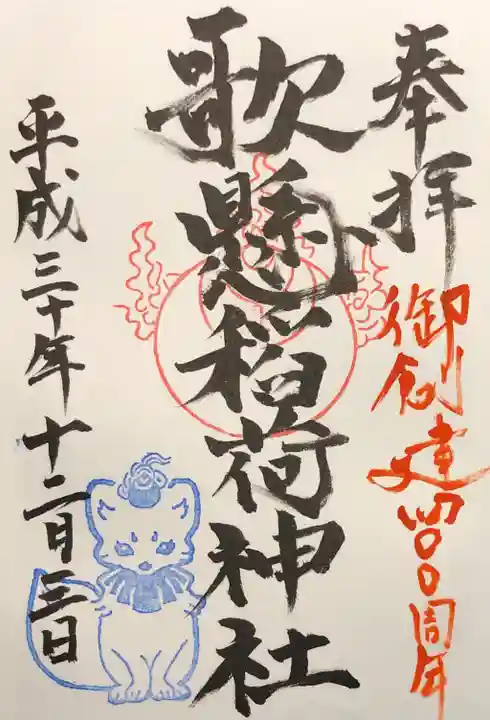 奉拝
御創建四〇〇周年
歌懸稲荷神社
平成三十年十二月三日